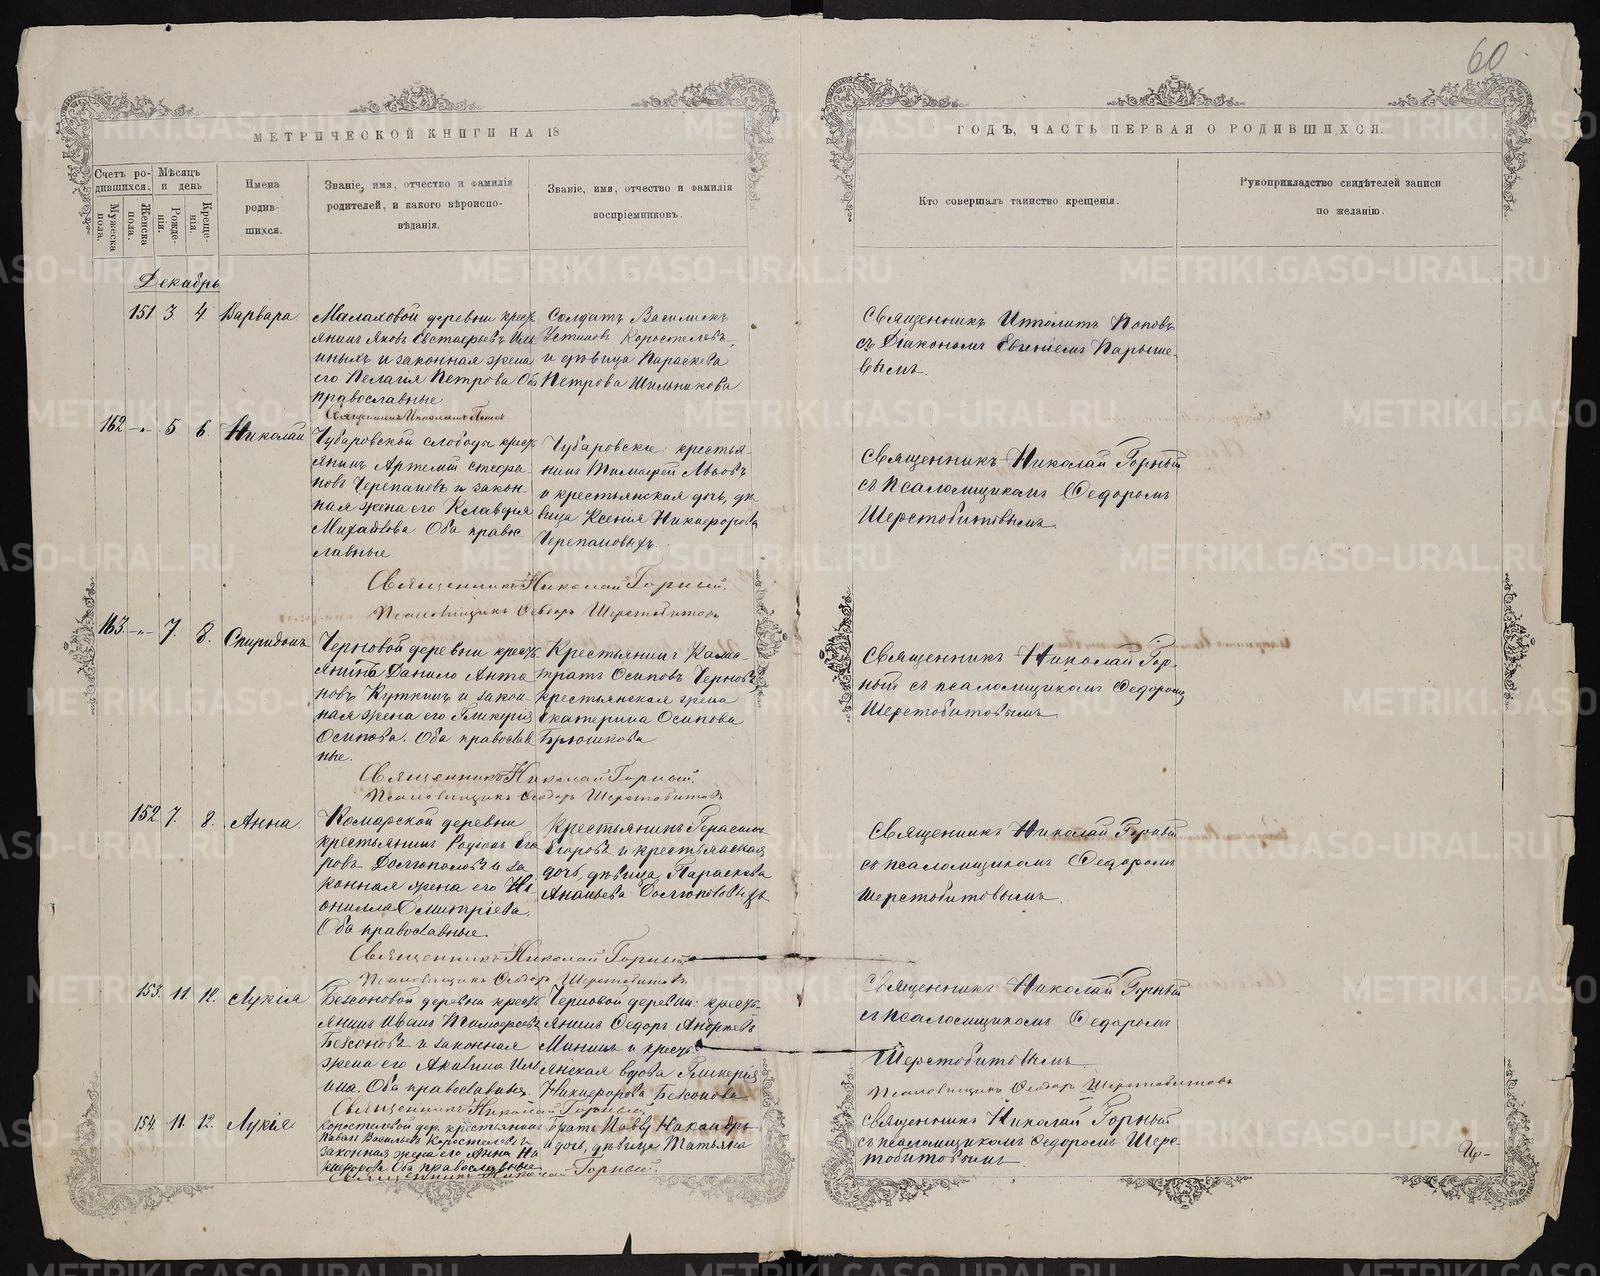 60
МЕТРИЧЕСКОЙ КНИГИ НА 18
ГОДЪ, ЧАСТЬ ПЕРВАЯ О РОДИВШИХСЯ.
Счетъ родившихся.
Мужеска пола.
Женска пола.
Мѣсяцъ и день
Рожденія.
Крещенія.
Имена родившихся.
Званіе, имя, отчество и фамилія
родителей, и какого вѣроисповѣданія.
Званіе, имя, отчество и фамилія
воспріемниковъ.
Кто совершалъ таинство крещенія.
Рукоприкладство свидѣтелей записи
по желанію.
Декабрь
151 3 4 Варвара
Малаховой деревни крест
янинъ Яковъ Евстафьевъ
и законная жена
его Пелагія Петрова Оба
православные
Солдатъ Василискъ
Устиновъ Коростелевъ,
и дѣвица Параскева
Петрова Шильникова
Священникъ Ипполитъ Поповъ
съ Діакономъ Евгеніемъ Парыше-
вымъ.
Священникъ Ипполитъ Поповъ
162 -"- 5 6 Николай
Чубаровской слободы крест
янинъ Артемій Стефа
новъ Черепановъ и закон
ная жена его Клавдія
Михайлова Оба правос
лавные
Чубаровскіе: крестья
нинъ Тимофей Львовъ
и крестьянская дочь, дѣ
вица Ксенія Никифорова
Черепановыхъ.
Священникъ Николай Горный
съ псаломщикомъ Федоромъ
Шерстобитовымъ.
Священникъ Николай Горный.
Псаломщикъ Федоръ Шерстобитовъ
163 -"- 7. 8. Спиридонъ
Черновой деревни кресть
янинъ Данило Анто
новъ Куткинъ и закон
ная жена его Гликерія
Осипова. Оба православ
ные.
Крестьянинъ
Осиповъ Черновъ,
крестьянская жена
Екатерина Осипова
Брюшкова
Священникъ Николай Гор-
ный съ псаломщикомъ Федоромъ
Шерстобитовымъ
Священникъ Николай Горный.
Псаломщикъ Федоръ Шерстобитовъ
152 7. 8. Анна.
Комарской деревни
крестьянинъ Родіонъ Его
ровъ Долгополовъ и за
конная жена его Не
онилла Дмитріева.
Оба православные.
Крестьянинъ Герасимъ
Егоровъ и крестьянская
дочь, дѣвица Параскева
Ананьева Долгополовыхъ
Священникъ Николай Горный
съ псаломщикомъ Федоромъ
Шерстобитовымъ.
Священникъ Николай Горный
Псаломщикъ Федоръ Шерстобитовъ
153. 11. 12. Лукія
Безсоновой деревни кресть
янинъ Иванъ Тимофеевъ
Безсоновъ и законная
жена его Акилина Иль
ина. Оба православные.
Черновой деревни: кресть
янинъ Федоръ Андреевъ
Мининъ и кресть
янская вдова Гликерія
Никифорова Безсонова
Священникъ Николай Горный
съ псаломщикомъ Федоромъ
Шерстобитовымъ
Псаломщикъ Федоръ Шерстобитовъ
Священникъ Николай Горный.
154 11. 12. Лукія
Коростелевой дер. крестьянинъ
Павелъ Васильевъ Коростелевъ и
законная жена его Анна Ни
кифорова Оба православные
Братъ
и дочь, дѣвица Татьяна
Священникъ Николай Горный
съ псаломщикомъ Федоромъ Шерс-
тобитовымъ
Священникъ Николай Горный.